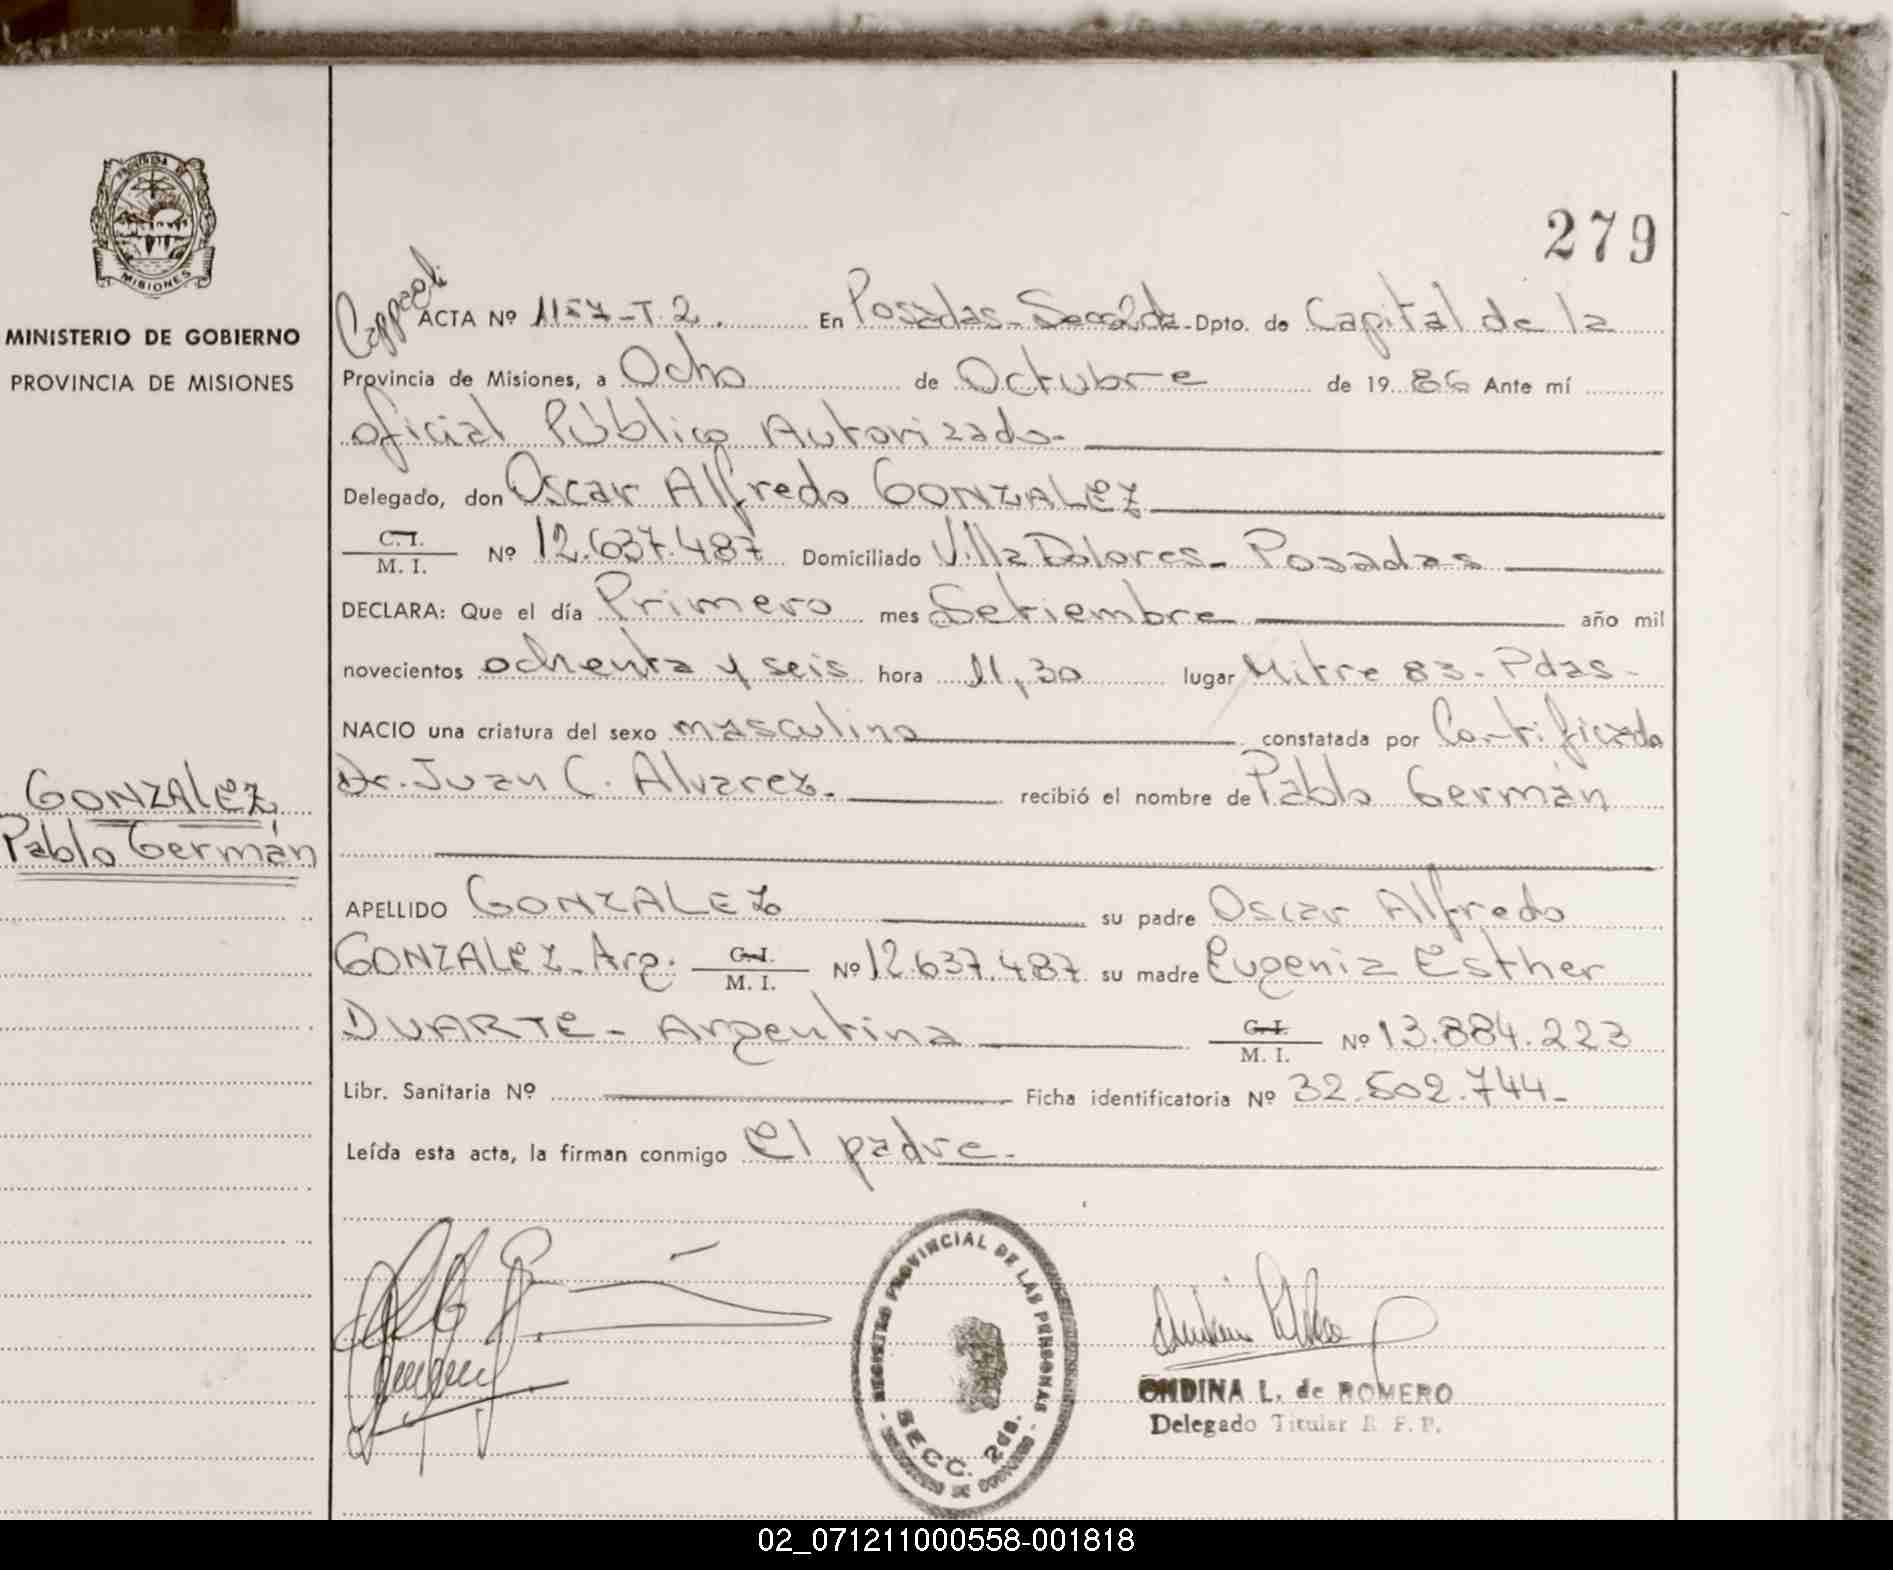 PROVINCIA DE
MISIONES
MINISTERIO DE GOBIERNO
PROVINCIA DE MISIONES
279
ACTA Nº 1157-T.2. En Posadas-Secc2da-Dpto. de Capital de la
Provincia de Misiones, a Ocho de Octubre de 19 86 Ante mí
oficial Público Autorizado-
Delegado, don Oscar Alfredo GONZALEZ
C. I.
M. I. Nº 12.637.487 Domiciliado Villa Dolores- Posadas
DECLARA: Que el día Primero mes Setiembre año mil
novecientos ochenta y seis hora 11,30 lugar Mitre 83- Pdas-
NACIO una criatura del sexo masculino constatada por Certificado
Dr. Juan C. Alvarez- recibió el nombre de Pablo Germán
GONZALEZ,
Pablo Germán
APELLIDO GONZALEZ su padre Oscar Alfredo
GONZALEZ- Arg. C. I.
M. I. Nº 12.637.487 su madre Eugenia Esther
DUARTE- Argentina C. I.
M. I. Nº 13.884.223
Libr. Sanitaria Nº Ficha identificatoria Nº 32.502.744-
Leída esta acta, la firman conmigo el padre-
REGISTRO PROVINCIAL DE LAS PERSONAS
SECC. 2da.
MINISTERIO DE GOBIERNO
ONDINA L. de ROMERO
Delegado Titular R. P. P.
02_071211000558-001818